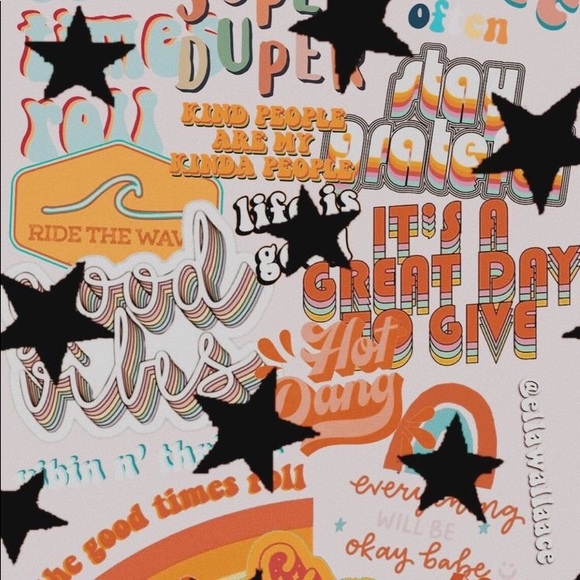 times
roll
SUPER
DUPER
often
stay
grateful
KIND PEOPLE
ARE MY
KINDA PEOPLE
RIDE THE WAV
life is
good
vibes
IT'S A
GREAT DAY
TO GIVE
Hot
Dang
@ellawallaace
vibin n' thr
the good times roll
everything
WILL BE
okay babe